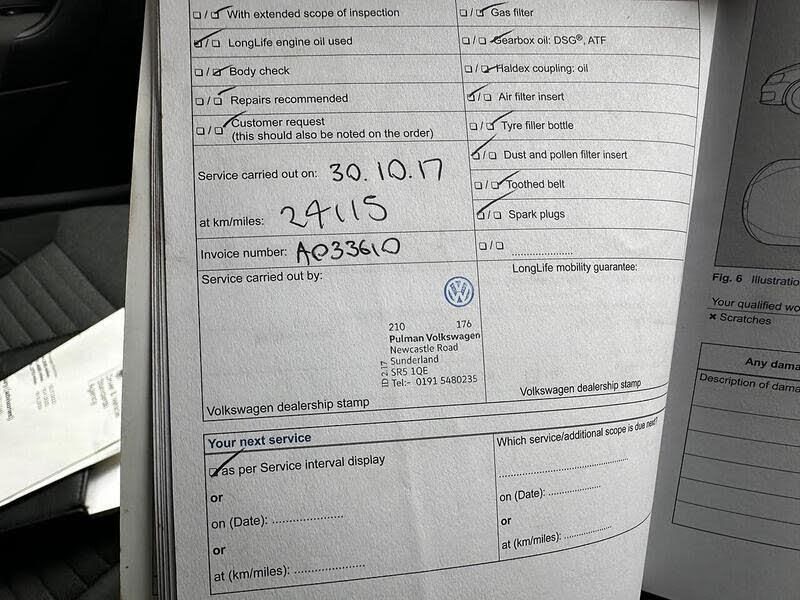 ☐ / ☑ With extended scope of inspection
☑ / ☐ LongLife engine oil used
☐ / ☑ Body check
☐ / ☑ Repairs recommended
☐ / ☑ Customer request
(this should also be noted on the order)
Service carried out on: 30.10.17
at km/miles: 24115
Invoice number: A033610
Service carried out by:
Volkswagen dealership stamp
☐ / ☑ Gas filter
☐ / ☑ Gearbox oil: DSG®, ATF
☐ / ☑ Haldex coupling: oil
☑ / ☐ Air filter insert
☐ / ☑ Tyre filler bottle
☑ / ☐ Dust and pollen filter insert
☐ / ☑ Toothed belt
☑ / ☐ Spark plugs
☐ / ☐ ....................
LongLife mobility guarantee:
210 176
Pulman Volkswagen
Newcastle Road
Sunderland
SR5 1QE
Tel:- 0191 5480235
ID 2.17
Volkswagen dealership stamp
Your next service
☑ as per Service interval display
or
on (Date): ....................
or
at (km/miles): ....................
Which service/additional scope is due next?
....................
on (Date): ....................
or
at (km/miles): ....................
Fig. 6 Illustratio
Your qualified wo
× Scratches
Any dama
Description of dama